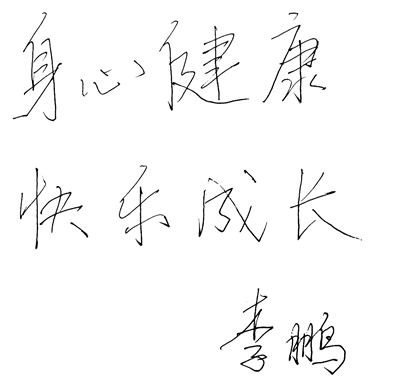 身心健康
快乐成长
李鹏